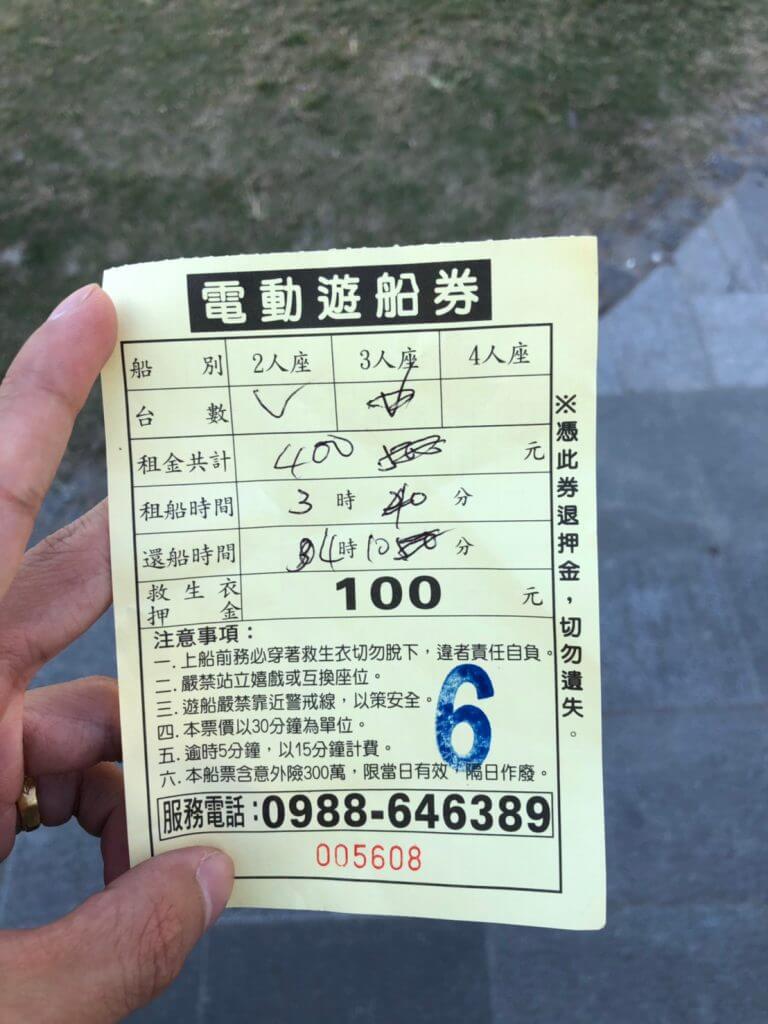 電動遊船券
船別 2人座 3人座 4人座
台數 ✓
租金共計 400 元
租船時間 3時40分
還船時間 4時10分
救生衣押金 100 元
注意事項：
一.上船前務必穿著救生衣切勿脫下，違者責任自負。
二.嚴禁站立嬉戲或互換座位。
三.遊船嚴禁靠近警戒線，以策安全。
四.本票價以30分鐘為單位。
五.逾時5分鐘，以15分鐘計費。
六.本船票含意外險300萬，限當日有效，隔日作廢。
6
服務電話：0988-646389
005608
※憑此券退押金，切勿遺失。